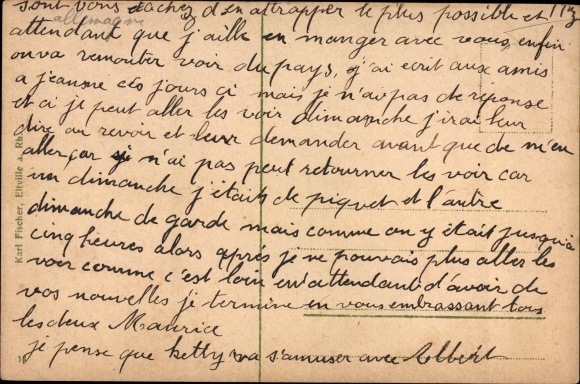 sont bons tachez d'en attrapper le plus possible et
allemagne
attendant que j'aille en manger avec vous enfin
on va remonter voir du pays, j'ai ecrit aux amis
a jeanne ces jours ci mais je n'ai pas de reponse
et si je peut aller les voir dimanche j'irai leur
dire au revoir et leur demander avant que de m'en
aller car je n'ai pas peut retourner les voir car
un dimanche j'étais de piquet et l'autre
dimanche de garde mais comme on y était jusqu'à
cinq heures alors après je ne pouvais plus aller les
voir comme c'est loin en attendant d'avoir de
vos nouvelles je termine en vous embrassant tous
les deux Maurice
je pense que ketty va s'amuser avec Albert
Karl Fischer, Eltville a. Rh.